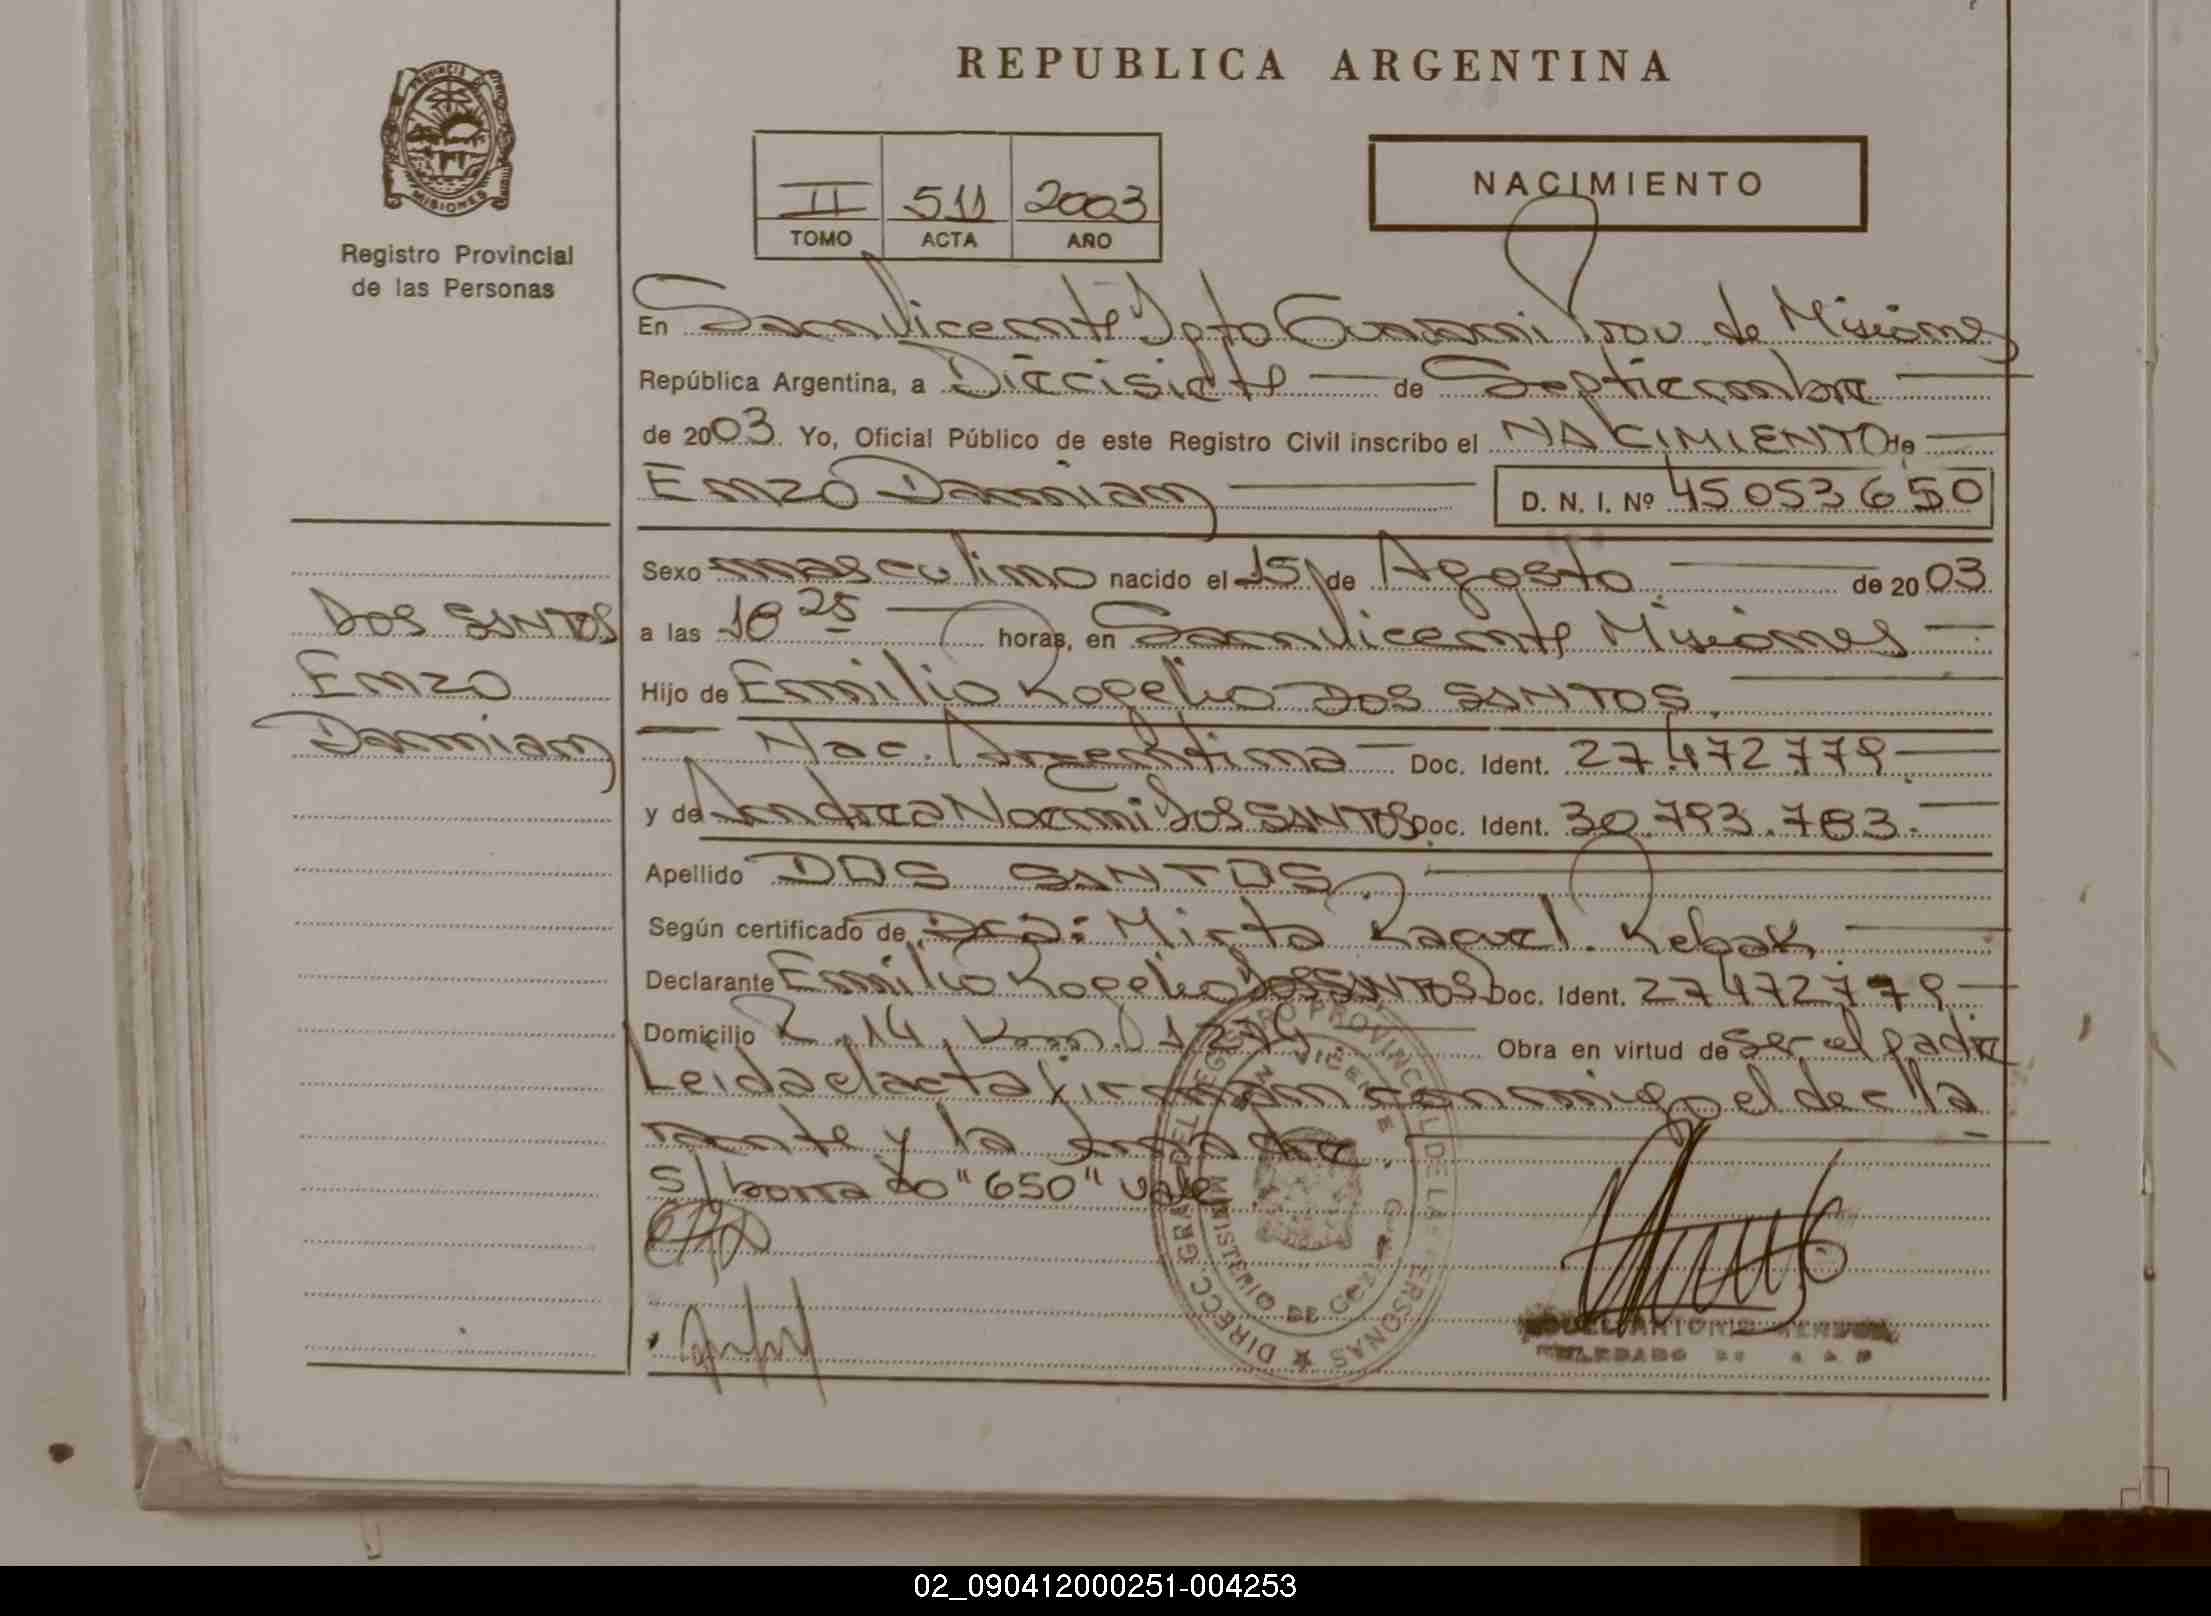 REPUBLICA ARGENTINA
PROVINCIA DE
MISIONES
Registro Provincial
de las Personas
II 511 2003
TOMO ACTA AÑO
NACIMIENTO
En San Vicente Dpto Guaraní Prov. de Misiones
República Argentina, a Diecisiete de Septiembre
de 2003. Yo, Oficial Público de este Registro Civil inscribo el NACIMIENTO de
Enzo Damian D. N. I. Nº 45053650
Sexo masculino nacido el 15 de Agosto de 2003
a las 18 25 horas, en San Vicente Misiones
Hijo de Emilio Rogelio DOS SANTOS.
Nac. Argentina Doc. Ident. 27.472.779
y de Andrea Noemi Dos SANTOS Doc. Ident. 30.793.783.
Apellido DOS SANTOS.
Según certificado de Dra: Mirta Raquel. Rebak
Declarante Emilio Rogelio Dos SANTOS Doc. Ident. 27472779
Domicilio R. 14, Km. 1274. Obra en virtud de ser el padre
Leida el acta firman conmigo el decla
rante y la madre.
s/borrado "650" vale
Dos SANTOS
Enzo
Damian
DIRECC. GRAL DEL REGISTRO PROVINCIAL DE LAS PERSONAS
MINISTERIO DE GOB
SAN VICENTE
ANTONIO
02_090412000251-004253